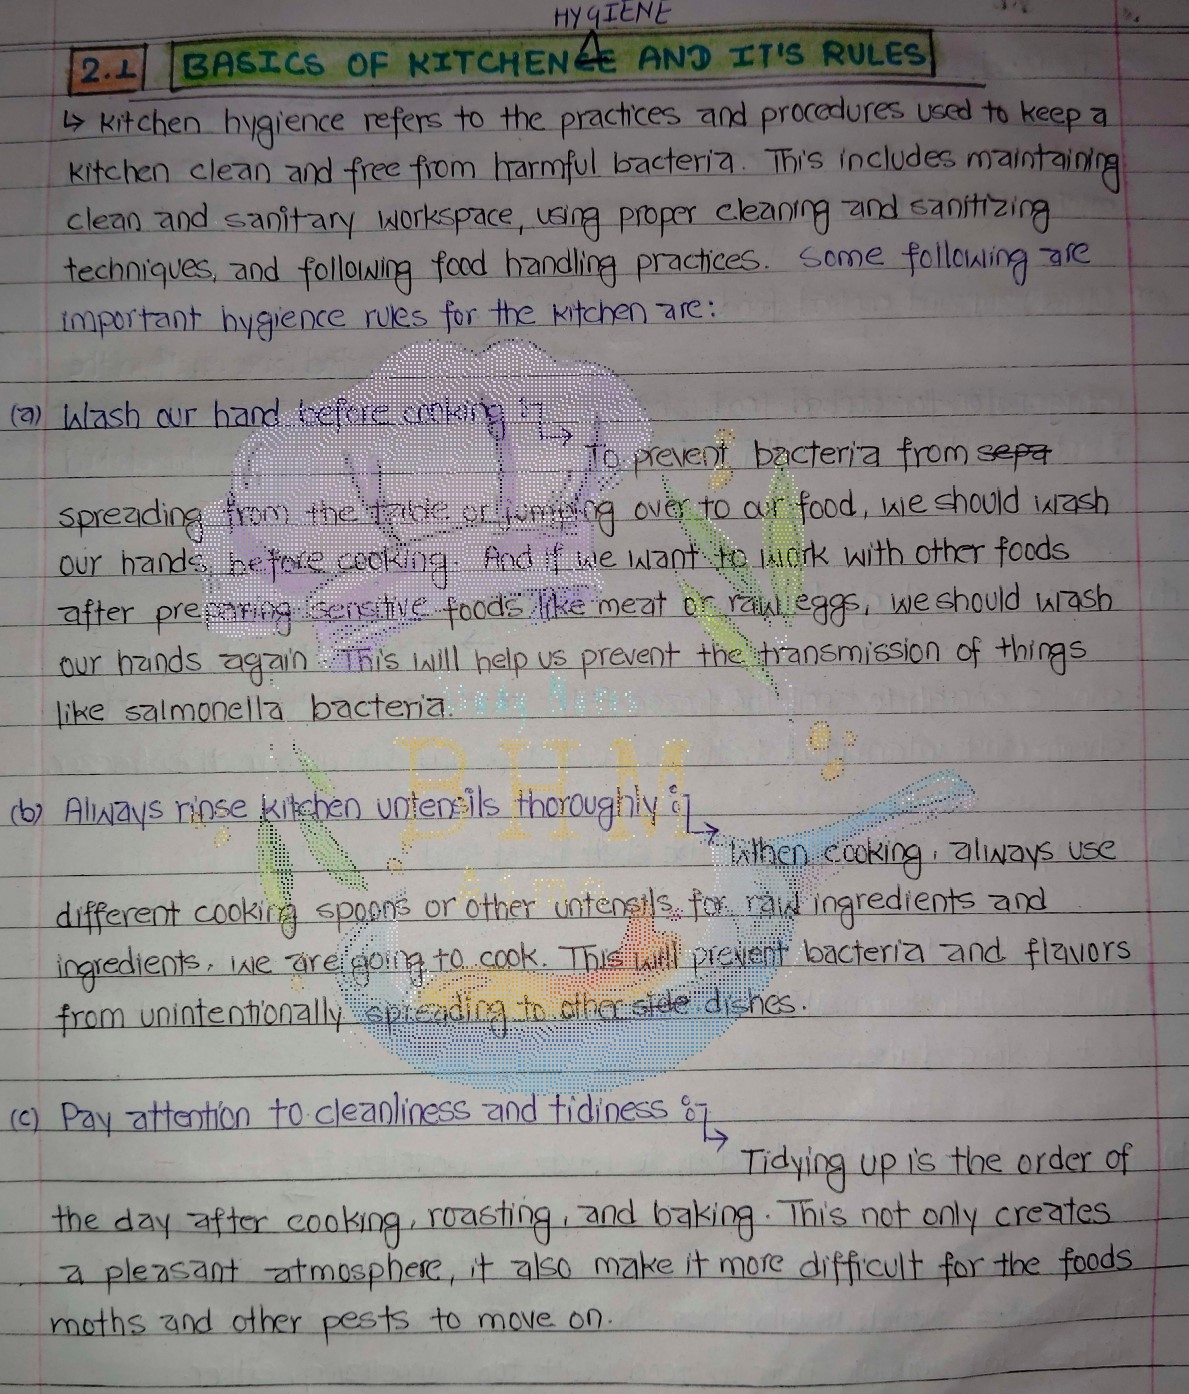 HYGIENE
2.1 BASICS OF KITCHEN AND IT'S RULES
↳ Kitchen hygience refers to the practices and procedures used to keep a
kitchen clean and free from harmful bacteria. This includes maintaining
clean and sanitary workspace, using proper cleaning and sanitizing
techniques, and following food handling practices. Some following are
important hygience rules for the kitchen are:
(a) Wash our hand before cooking :-
↳ To prevent bacteria from sepa
spreading from the table or jumping over to our food, we should wash
our hands before cooking. And if we want to work with other foods
after preparing sensitive foods like meat or raw eggs, we should wash
our hands again. This will help us prevent the transmission of things
like salmonella bacteria.
BHM
(b) Always rinse kitchen untensils thoroughly :-
↳ When cooking, always use
different cooking spoons or other untensils for raw ingredients and
ingredients, we are going to cook. This will prevent bacteria and flavors
from unintentionally spreading to other side dishes.
(c) Pay attention to cleanliness and tidiness :-
↳ Tidying up is the order of
the day after cooking, roasting, and baking. This not only creates
a pleasant atmosphere, it also make it more difficult for the foods
moths and other pests to move on.